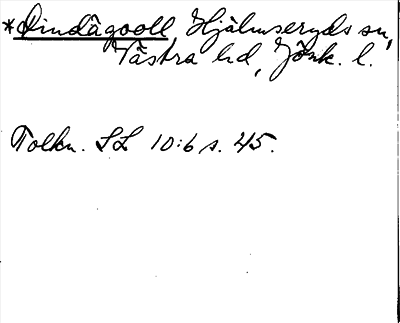 *Dindågooll, Hjälmseryds sn,
Västra hd, Jönk. l.
Tolkn. SL 10:6 s. 45.